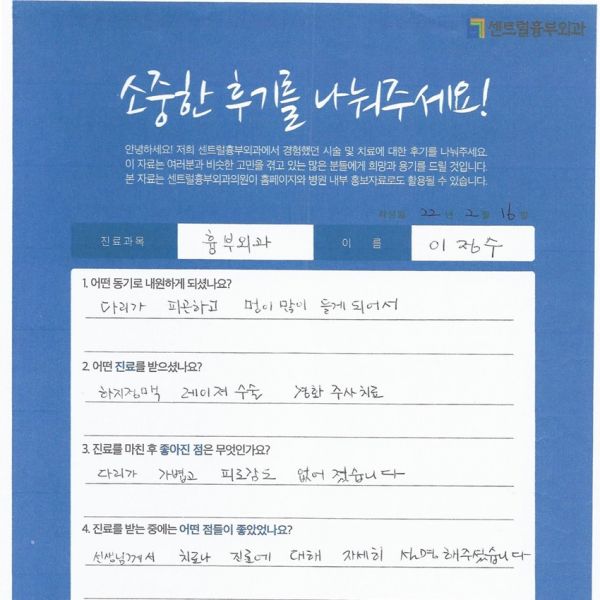 센트럴흉부외과
소중한 후기를 나눠주세요!
안녕하세요! 저희 센트럴흉부외과에서 경험했던 시술 및 치료에 대한 후기를 나눠주세요.
이 자료는 여러분과 비슷한 고민을 겪고 있는 많은 분들에게 희망과 용기를 드릴 것입니다.
본 자료는 센트럴흉부외과의원이 홈페이지와 병원 내부 홍보자료로도 활용될 수 있습니다.
작성일 22 년 2 월 16 일
진료과목 흉부외과 이 름 이정수
1. 어떤 동기로 내원하게 되셨나요?
다리가 피곤하고 멍이 많이 들게 되어서
2. 어떤 진료를 받으셨나요?
하지정맥 레이저 수술 경화 주사치료
3. 진료를 마친 후 좋아진 점은 무엇인가요?
다리가 가볍고 피로감도 없어 졌습니다
4. 진료를 받는 중에는 어떤 점들이 좋았었나요?
선생님께서 치료나 진료에 대해 자세히 설명해주셨습니다